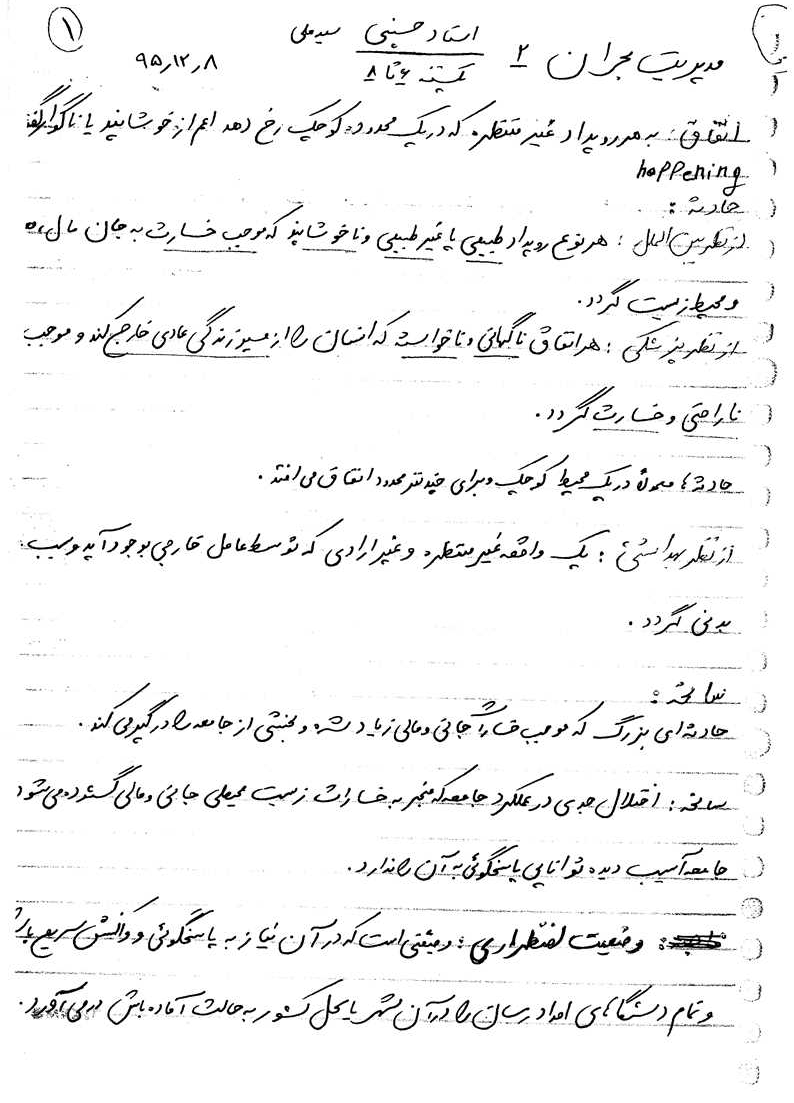 ۱
مدیریت بحران ۲ استاد حسینی سیدعلی ۹۵،۱۲،۸
یکشنبه ۶ تا ۸
اتفاق: به هر رویداد غیر منتظره که در یک محدوده کوچک رخ دهد اعم از خوشایند یا ناگوار گفته
happening
حادثه:
از نظر بین الملل: هر نوع رویداد طبیعی یا غیر طبیعی و ناخوشایند که موجب خسارت به جان مال،
و محیط زیست گردد.
از نظر پزشکی: هر اتفاق ناگهانی و ناخواسته که انسان را از مسیر زندگی عادی خارج کند و موجب
ناراحتی و خسارت گردد.
حادثه ها معمولاً در یک محیط کوچک و برای چند نفر محدود اتفاق می افتد.
از نظر بهداشتی: یک واقعه غیر منتظره و غیر ارادی که توسط عامل خارجی بوجود آید و سبب
بدنی گردد.
سانحه:
حادثه ای بزرگ که موجب خسارات جانی و مالی زیاد شده و بخشی از جامعه را درگیر می کند.
سانحه: اختلال جدی در عملکرد جامعه که منجر به خسارات زیست محیطی جانی و مالی گسترده می شود
جامعه آسیب دیده توانایی پاسخگوئی به آن را ندارد.
وضعیت اضطراری: وضعیتی است که در آن نیاز به پاسخگوئی و واکنش سریع باشد
و تمام دستگاهای امداد رسان را در آن شهر یا کل کشور به حالت آماده باش در می آورد.